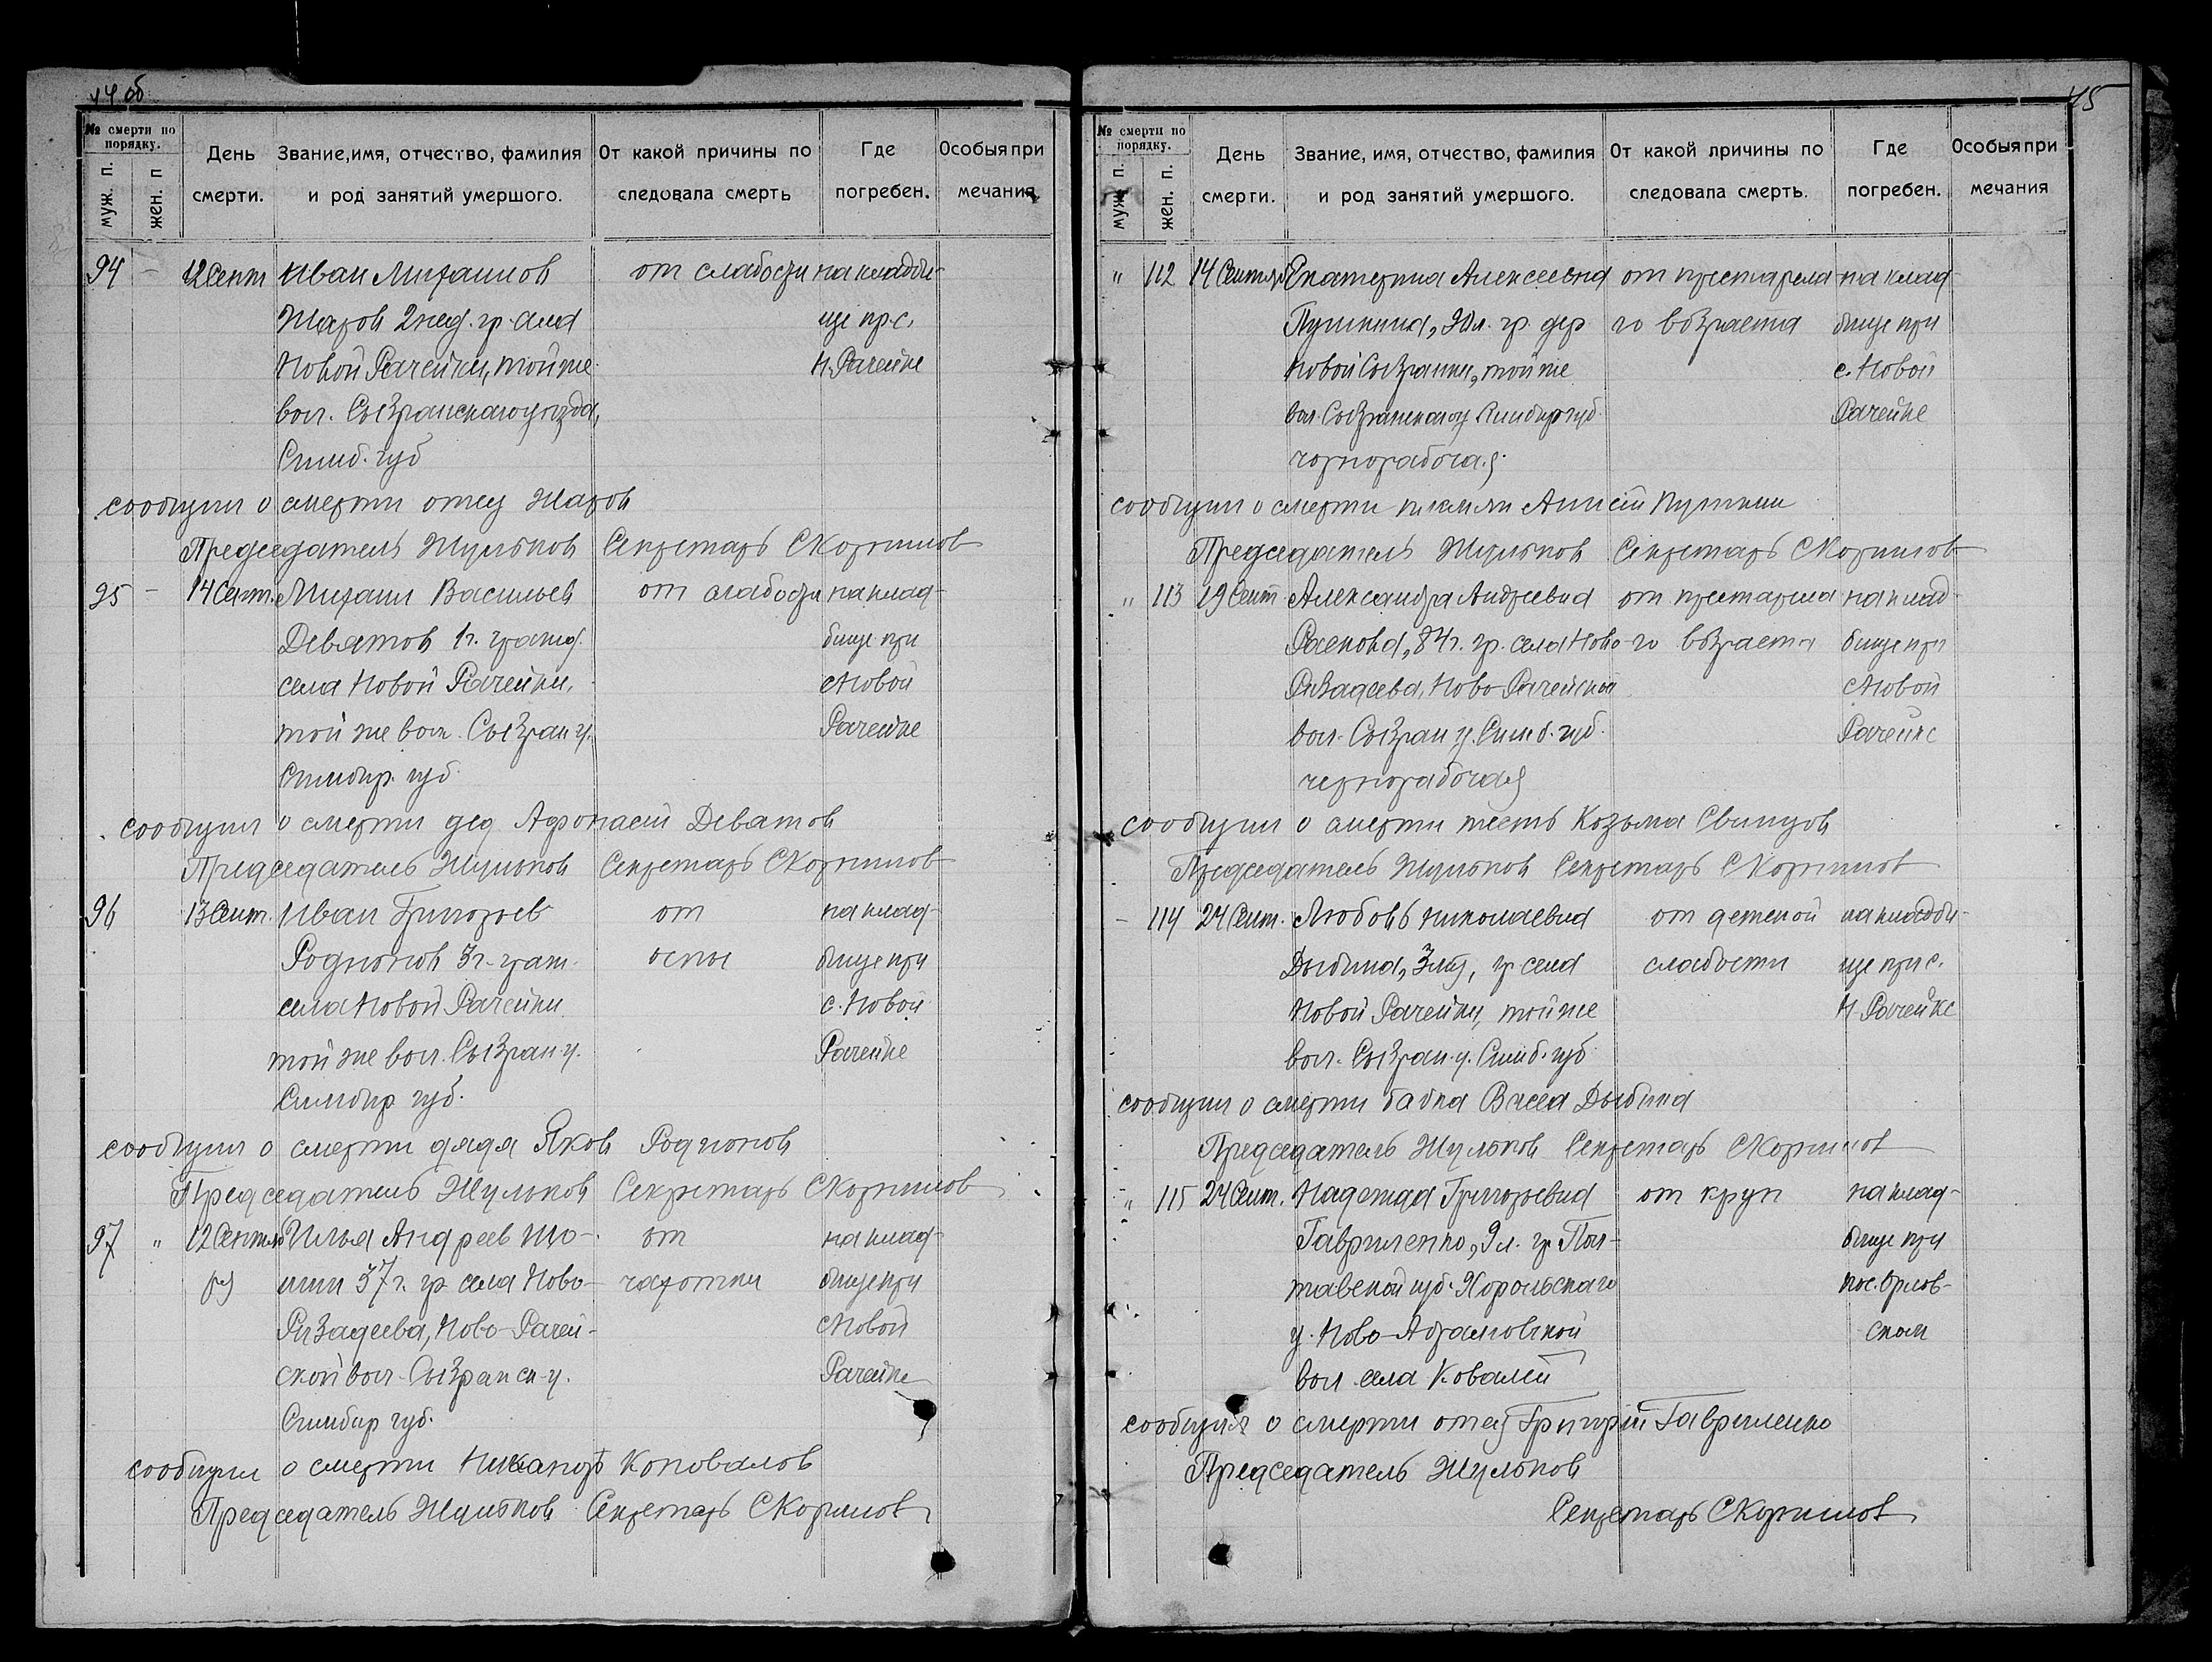 44 об
№ смерти по порядку.
муж. п.
жен. п
День смерти.
Звание, имя, отчество, фамилия и род занятий умершого.
От какой причины последовала смерть
Где погребен.
Особыя примечания
94 - 12 Сент Иван Михаилов от слабости на кладби-
Жаров 2 нед. гр. села ще пр. с.
Новой Рачейки, той же Н. Рачейке
вол. Сызранскаго уезда,
Симб. губ
сообщил о смерти отец Жаров
Председатель Жульков Секретарь СКорнилов
95 - 14 Сент. Михаил Васильев от слабости на клад-
Девятов 1 г. гражд. бище при
села Новой Рачейки, с Новой
той же вол. Сызран у. Рачейке
Симбир. губ.
сообщил о смерти дед Афонасий Деватов
Председатель Жульков Секретарь СКорнилов
96 13 Сент. Иван Григорьев от на клад-
Родионов 3 г. граж. оспы бище при
села Новой Рачейки с. Новой
той же вол. Сызран. у. Рачейке
Симбир губ.
сообщил о смерти дядя Яков Родионов
Председатель Жульков Секретарь СКорнилов
97 " 12 Сентяб Илья Андреев Шо- от на клад-
37 г. гр села Ново- чахотки бище при
Ризадеева, Ново-Рачей- с Новой
ской вол. Сызранск. у. Рачейке
Симбир губ.
сообщил о смерти Никанор Коновалов
Председатель Жульков Секретарь СКорнилов
45
№ смерти по порядку.
муж. п.
жен. п.
День смерти.
Звание, имя, отчество, фамилия и род занятий умершого.
От какой лричины последовала смерть.
Где погребен.
Особыя примечания
" 112 14 Сентяб Екатерина Алексеевна от престарела- на клад-
Пушкина, гр. дер го возраста бище при
Новой Сызранки, той же с. Новой
вол. Сызранскаго у Симбир губ. Рачейке
чорнорабочая.
сообщил о смерти Анисий Пушкин
Председатель Жульков Секретарь СКорнилов
" 113 19 Сент. Александра Андреевна от престарела- на клад-
Раскова, 84 г. гр. села Ново- го возраста бище при
Ризадеева, Ново-Рачейской с Новой
вол. Сызран у. Симб. губ. Рачейке
чернорабочая
сообщил о смерти тесть Козьма Свинцов
Председатель Жульков Секретарь СКорнилов
- 114 24 Сент. Любовь Николаевна от детской на кладби-
Дыбина, гр села слабости ще при с.
Новой Рачейки, той же Н. Рачейке
вол. Сызран. у. Симб. губ
сообщил о смерти бабка Васса Дыбина
Председатель Жульков Секретарь СКорнилов
" 115 24 Сент. Надежда Григорьевна от круп на клад-
Гавриленко, 9 л. гр. Пол- бище при
тавской губ. Хорольскаго пос. Орлов-
у. Ново-Абрамовской ском
вол села Ковалей
сообщил о смерти отец Григорий Гавриленко
Председатель Жульков
Секретарь СКорнилов